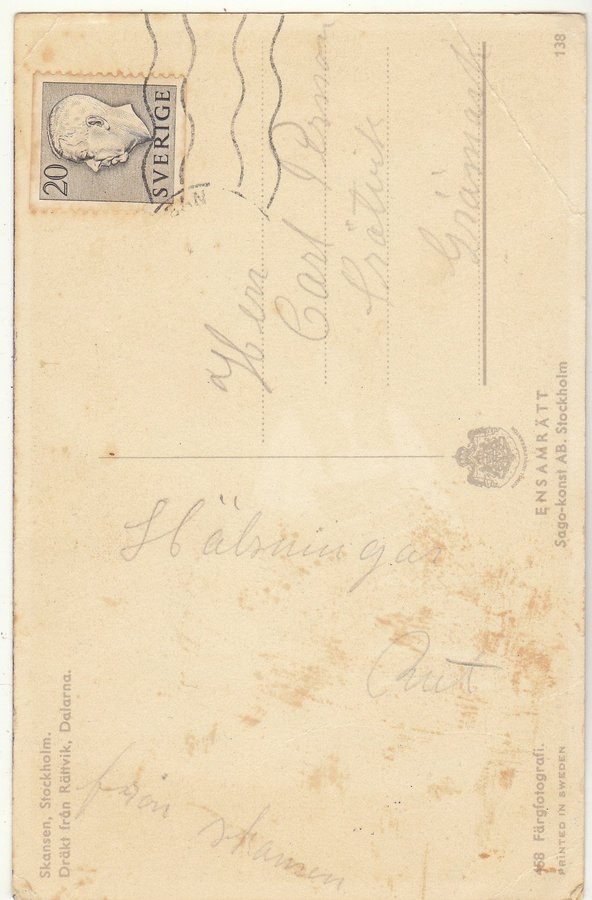 Skansen, Stockholm.
Dräkt från Rättvik, Dalarna.
Hälsningar
Rut
från skansen
458 Färgfotografi.
PRINTED IN SWEDEN
ENSAMRÄTT
Sago-konst AB. Stockholm
20
SVERIGE
Herr
Carl Persson
138